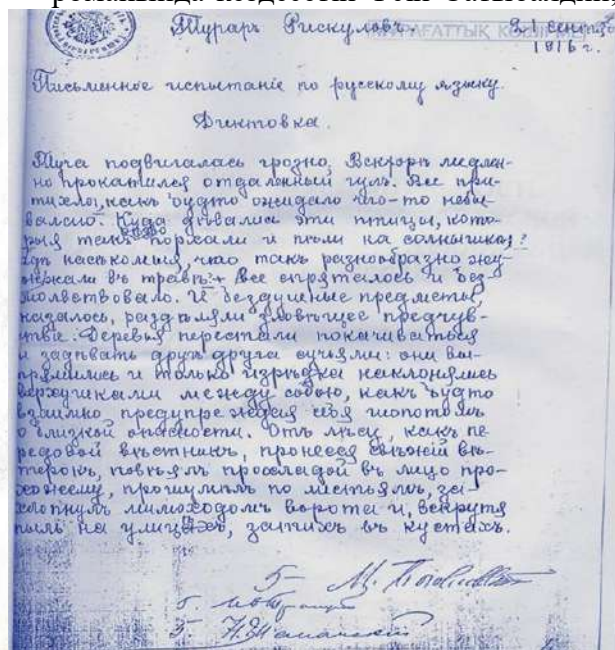 Тураръ Рискуловъ. 21 сентяб
1916 г.
Письменное испытаніе по русскому языку.
Диктовка.
Туча подвигалась грозно. Вскорѣ медлен-
но прокатился отдаленный гулъ. Все при-
тихло, какъ будто ожидало чего-то небы-
валаго. Куда дѣвались эти птицы, кото-
рыя такъ порхали и пѣли на солнышкѣ?
Гдѣ насѣкомыя, что такъ разнообразно жу-
жжали въ травѣ? Все спряталось и без-
молвствовало. И бездушные предметы,
казалось, раздѣляли зловѣщее предчув-
ствіе. Деревья перестали покачиваться
и задѣвать другъ друга сучьями: они вы-
прямились и только изрѣдка наклонялись
верхушками между собою, какъ будто
взаимно предупреждая себя шопотомъ
о близкой опасности. Отъ лѣсу, какъ пе-
редовой вѣстникъ, пронесся свѣжій вѣ-
терокъ, повѣялъ прохладой въ лицо про-
хожему, прошумѣлъ по листьямъ, за-
хлопнулъ мимоходомъ ворота и, вскрутя
пыль на улицѣ, затихъ въ кустахъ.
5-
5.
5.